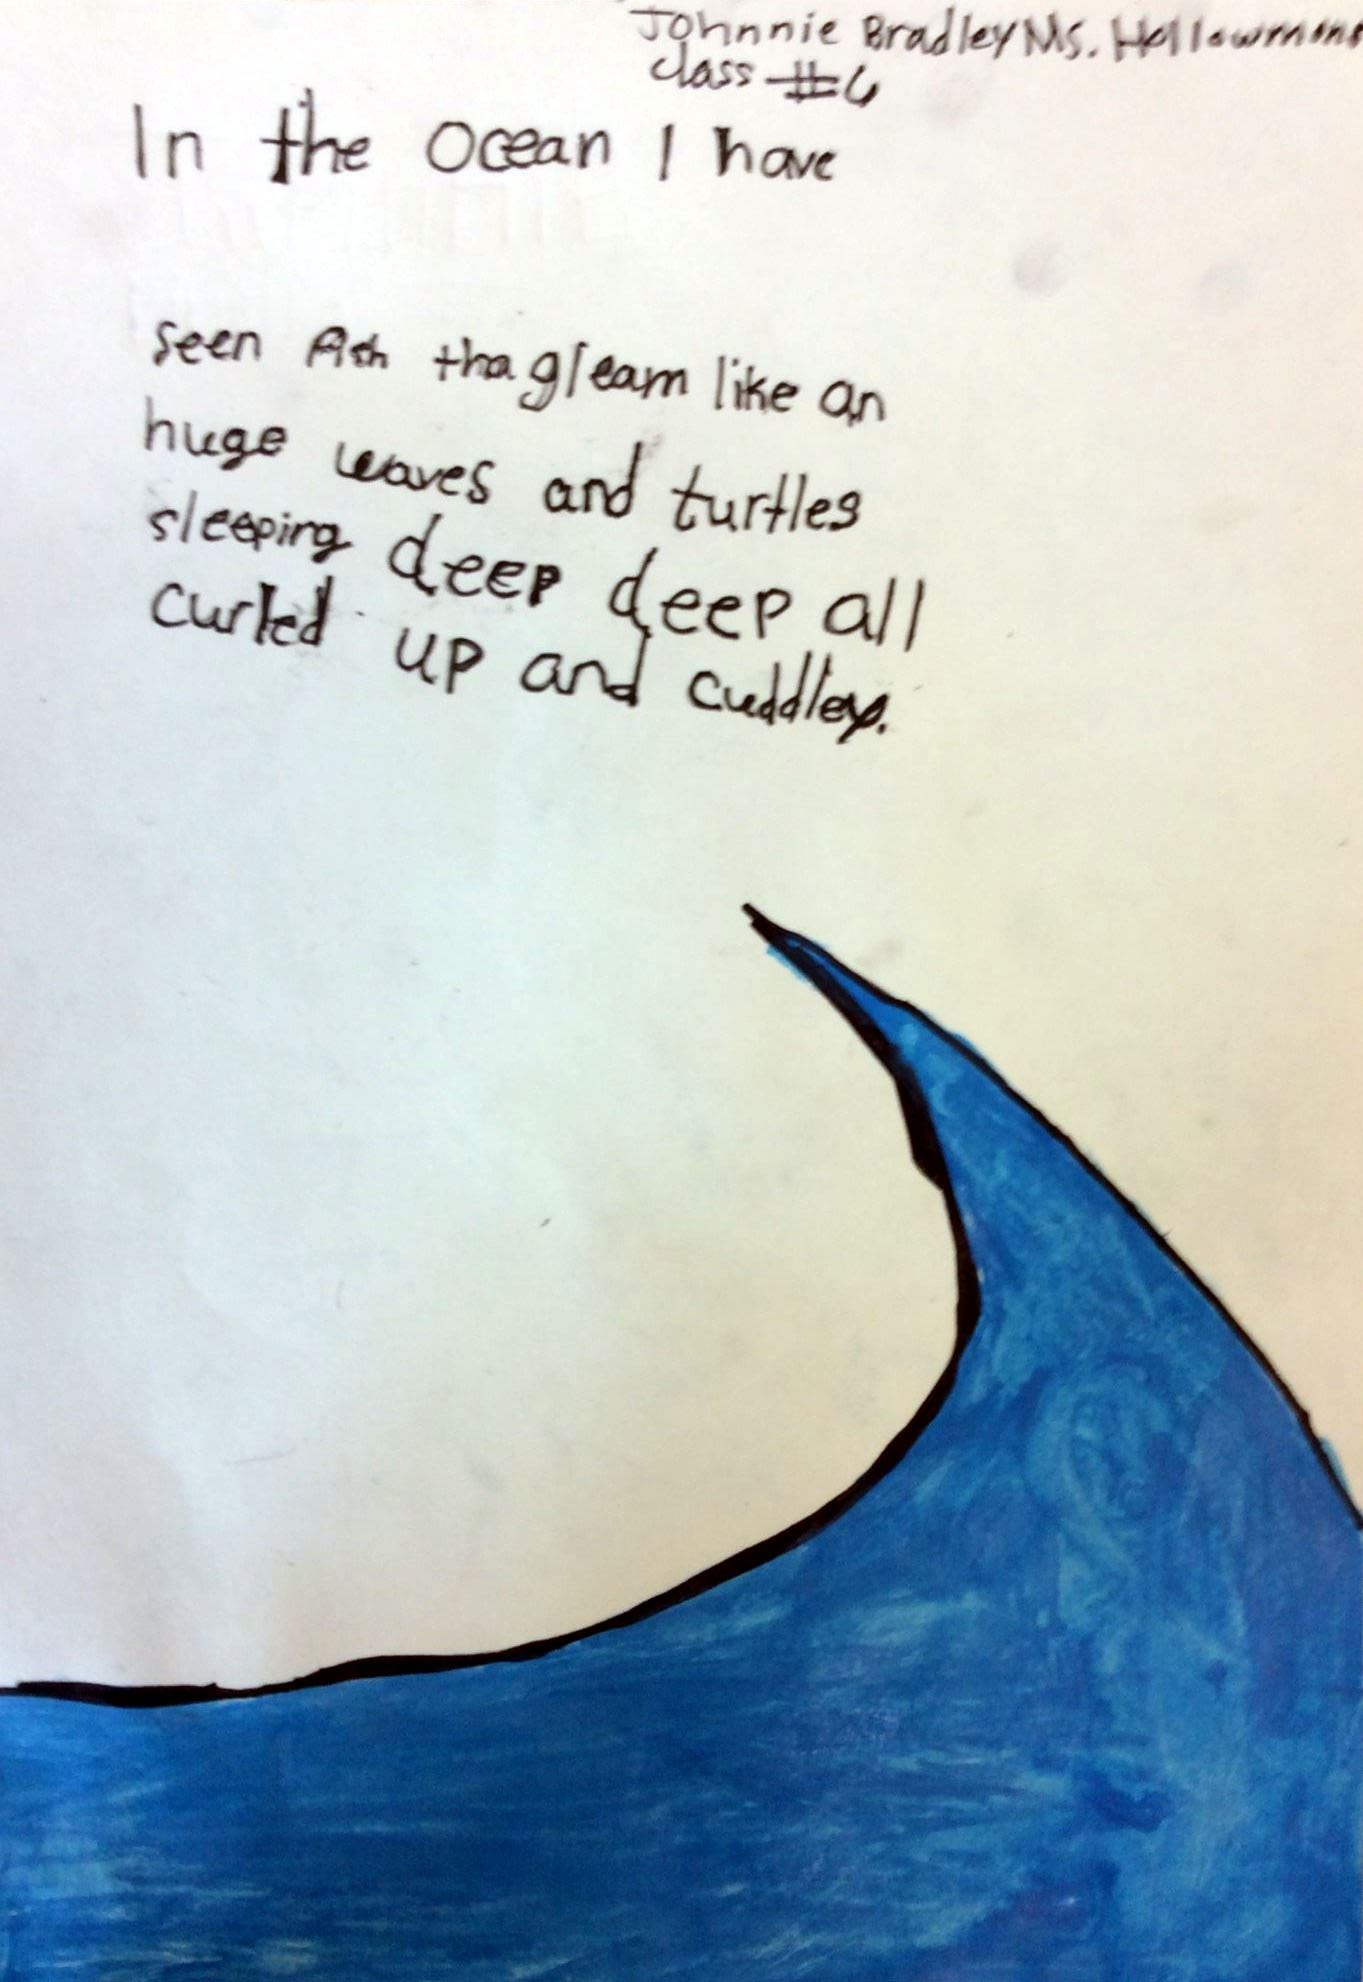 Johnnie Bradley Ms. Hollowmone
class #6
In the ocean I have
seen fish tha gleam like an
huge waves and turtles
sleeping deep deep all
curled up and cuddley.